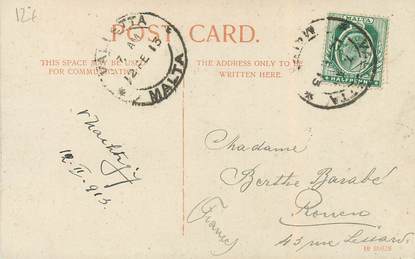 126
POST CARD.
THIS SPACE MAY BE USED
FOR COMMUNICATION
THE ADDRESS ONLY TO BE
WRITTEN HERE
VALLETTA
7 AM
12 FE 13
MALTA
MALTA
HALFPENNY
VALLETTA
MALTA
12.II.913.
Madame
Berthe Barabé
Rouen
43 rue
(France)